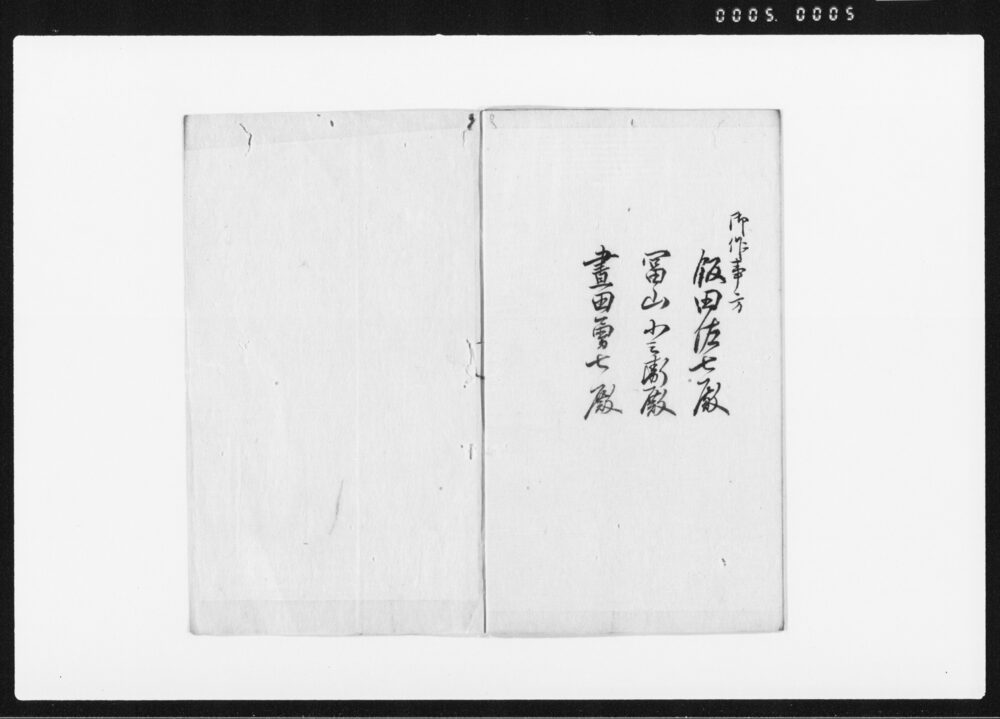 0005. 0005
御作事方
飯田佐七殿
冨山小三衛殿
畫田勇七殿